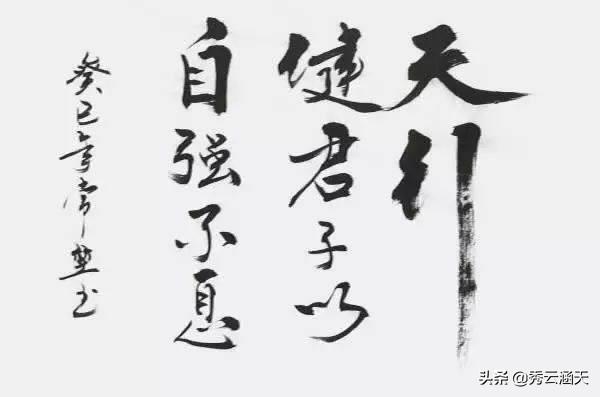 天行
健君子以
自强不息
癸巳年常书
头条 @秀云涵天